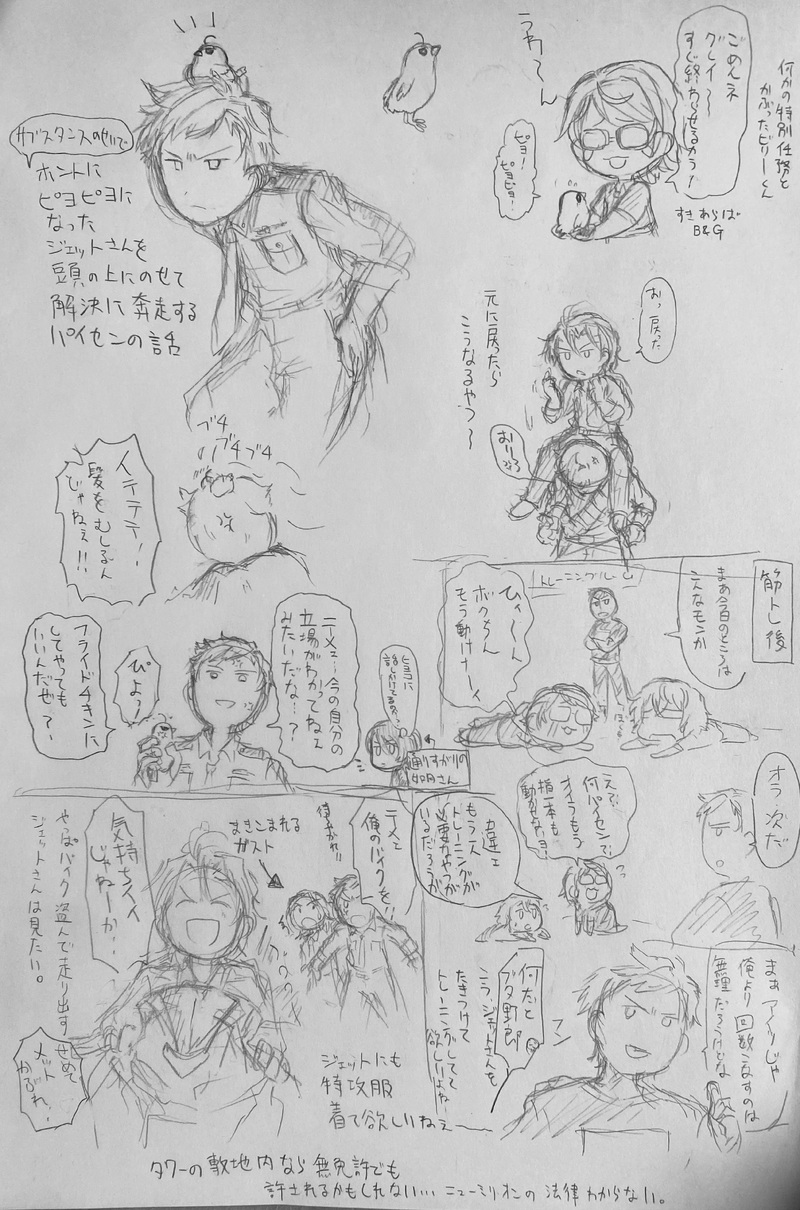 何かの特別任務と
かぶったビリーくん
ごめんネ
グレイ〜〜
すぐ終わらせるカラ!
うわ〜ん
ピヨ!
ピヨピヨ!
すきあらば
B&G
サブスタンスのせいで
ホントに
ピヨピヨに
なった
ジェットさんを
頭の上にのせて
解決に奔走する
パイセンの話
おっ戻った
元に戻ったら
こうなるやつ〜
おりろ
ブチ
ブチブチ
イテテテ!
髪をむしるん
じゃねぇ!!
ニーメェ…今の自分の
立場がわかってねェ
みたいだな…?
フライドチキンに
してやっても
いいんだぜ?
ぴよっ!
ヒヨコに
話しかけてる…
通りすがりの
如月さん
筋トレ後
トレーニングルーム
まあ今日のところは
こんなモンか
ひィ〜ん
ボクちん
もう動けナーイ
オラ、次だ
えっ!?
何パイセン!?
オイラもう
指一本も
動かせないヨ!
違ェ
もう一人
トレーニングが
必要なやつが
いるだろうが
まァ アイツじゃ
俺より回数こなすのは
無理だろうけどな
フン
何だと
ブタ野郎
こう、ジェットさんを
たきつけて
トレーニングしてて
欲しいよね
テメェ
俺のバイクを!!
俺もかよ!!
まきこまれる
ガスト
気持ちイイ
じゃねーか!
やっぱバイク盗んで走り出す
ジェットさんは見たい。
せめて
メット
かぶれ!
ジェットにも
特攻服
着て欲しいねェ
タワーの敷地内なら無免許でも
許されるかもしれない…ニューミリオンの法律わからない。